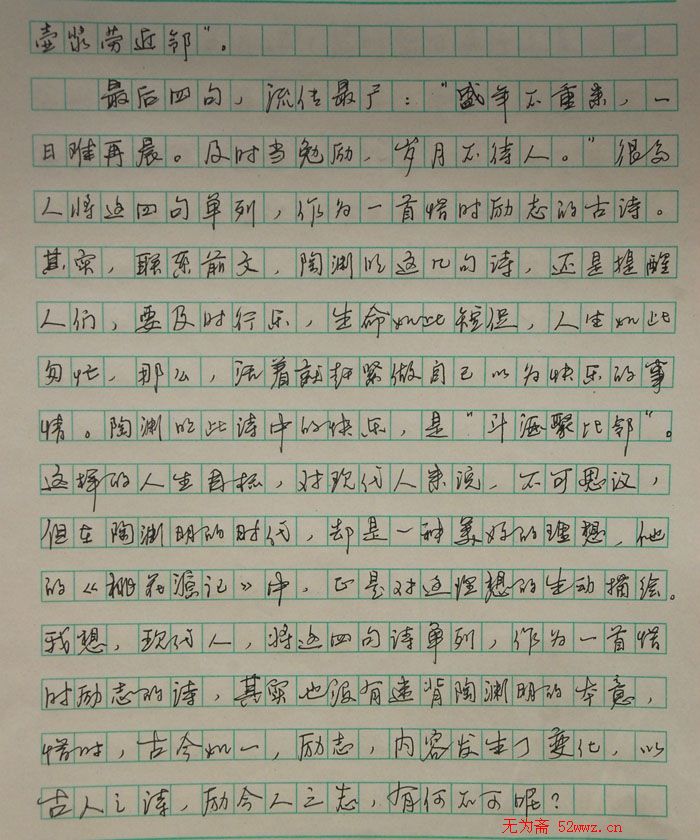 壶浆劳近邻”。
最后四句，流传最广：“盛年不重来，一
日难再晨。及时当勉励，岁月不待人。”很多
人将这四句单列，作为一首惜时励志的古诗。
其实，联系前文，陶渊明这几句诗，还是提醒
人们，要及时行乐，生命如此短促，人生如此
匆忙，那么，活着就赶紧做自己以为快乐的事
情。陶渊明此诗中的快乐，是“斗酒聚比邻”。
这样的人生目标，对现代人来说，不可思议，
但在陶渊明的时代，却是一种美好的理想，他
的《桃花源记》中，正是对这理想的生动描绘。
我想，现代人，将这四句诗单列，作为一首惜
时励志的诗，其实也没有违背陶渊明的本意，
惜时，古今如一，励志，内容发生了变化，以
古人之诗，励今人之志，有何不可呢？
无为斋 52wwz.cn